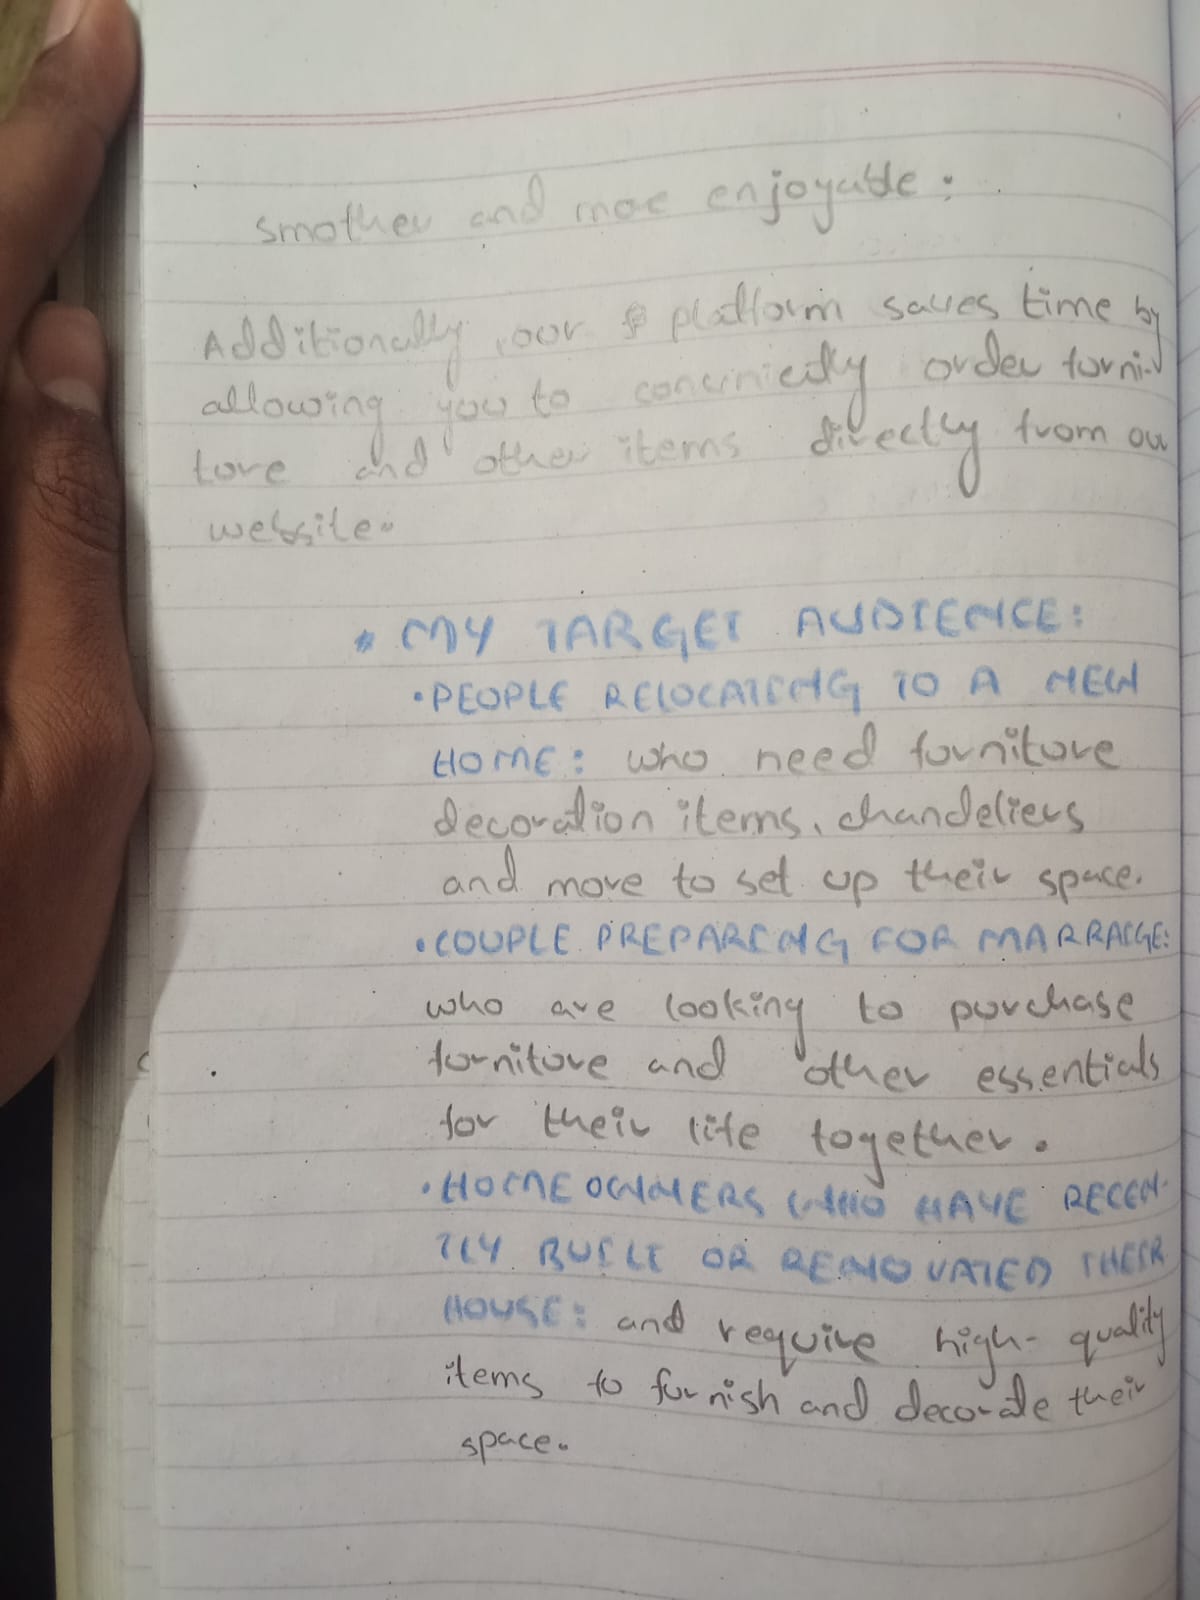 smother and moe enjoyable.
Additionally, our platform saves time by
allowing you to order furni-
ture and other items directly from ou
website.
* MY TARGET AUDIENCE:
• PEOPLE RELOCATING TO A NEW
HOME: who need furniture
decoration items, chandeliers
and more to set up their space.
• COUPLE PREPARING FOR MARRAIGE:
who are looking to purchase
furniture and other essentials
for their life together.
• HOMEOWNERS WHO HAVE RECEN-
TLY BUILT OR RENOVATED THEIR
HOUSE: and require high-quality
items to furnish and decorate their
space.